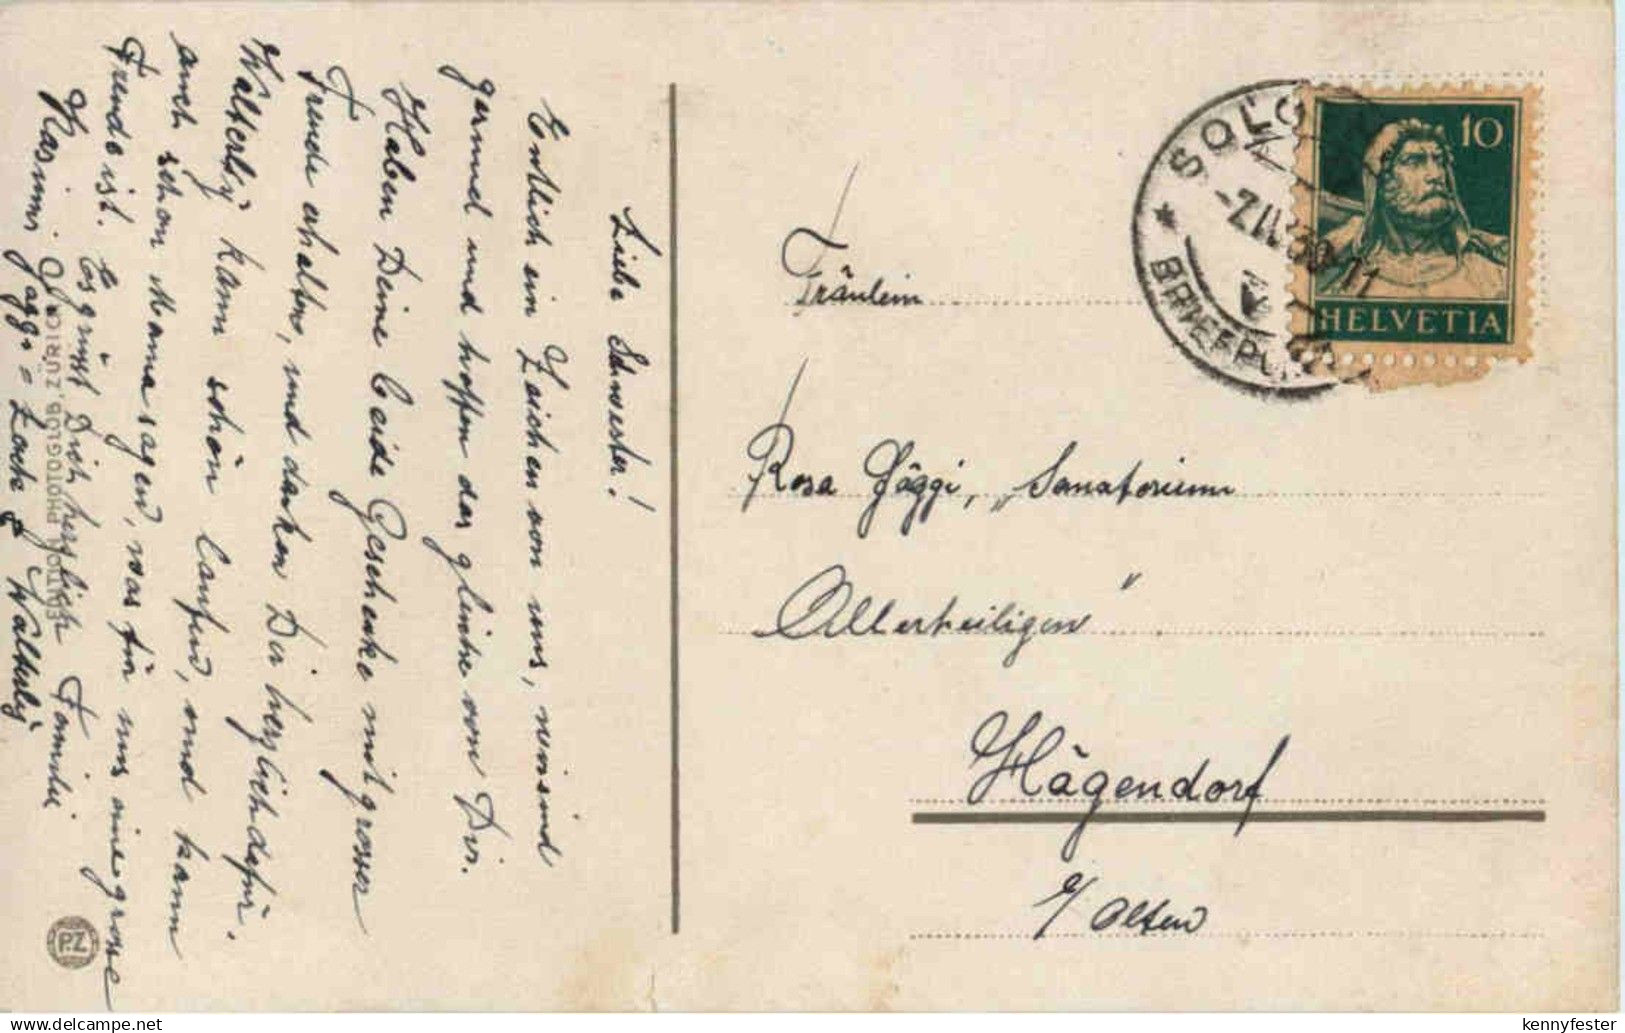 Liebe Schwester!
Entlich ein Zeichen von uns, wir sind
gesund und hoffen das gleiche von Dir.
Haben Deine beide Geschenke mit grosser
Freude erhalten, und danken Dir herzlich dafür.
Walterlÿ kann schön laufen, und kann
auch schon Mama sagen, was für uns eine grosse
Freude ist. Es grüsst Dich herzlich Familie
Kasimir Jäggi = Walterlÿ
PHOTOGLOB, ZÜRICH
PZ
SOLO
BRIEF
10
HELVETIA
Fräulein
Rosa Jäggi, „Sanatorium
Allerheiligen"
Hägendorf
b/ Olten
kennyfester